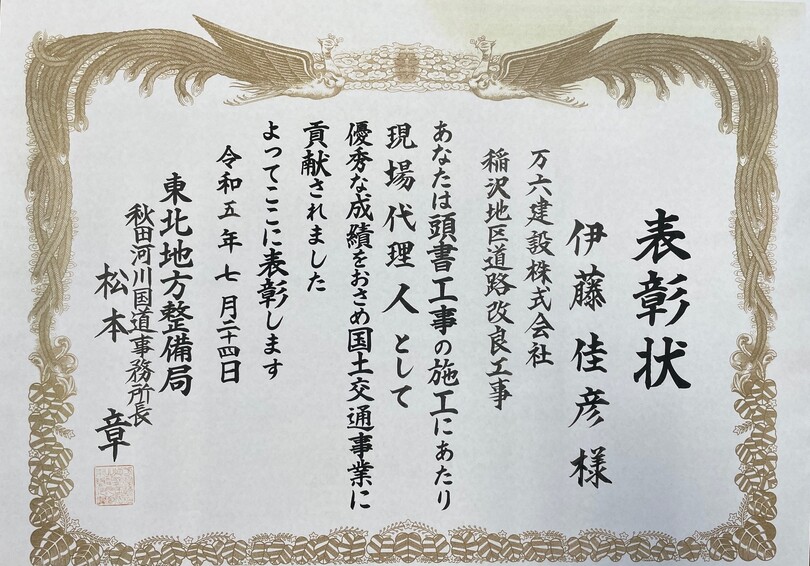 表彰状
伊藤佳彦様
万六建設株式会社
稲沢地区道路改良工事
あなたは頭書工事の施工にあたり
現場代理人として
優秀な成績をおさめ国土交通事業に
貢献されました
よってここに表彰します
令和五年七月二十四日
東北地方整備局
秋田河川国道事務所長
松本章